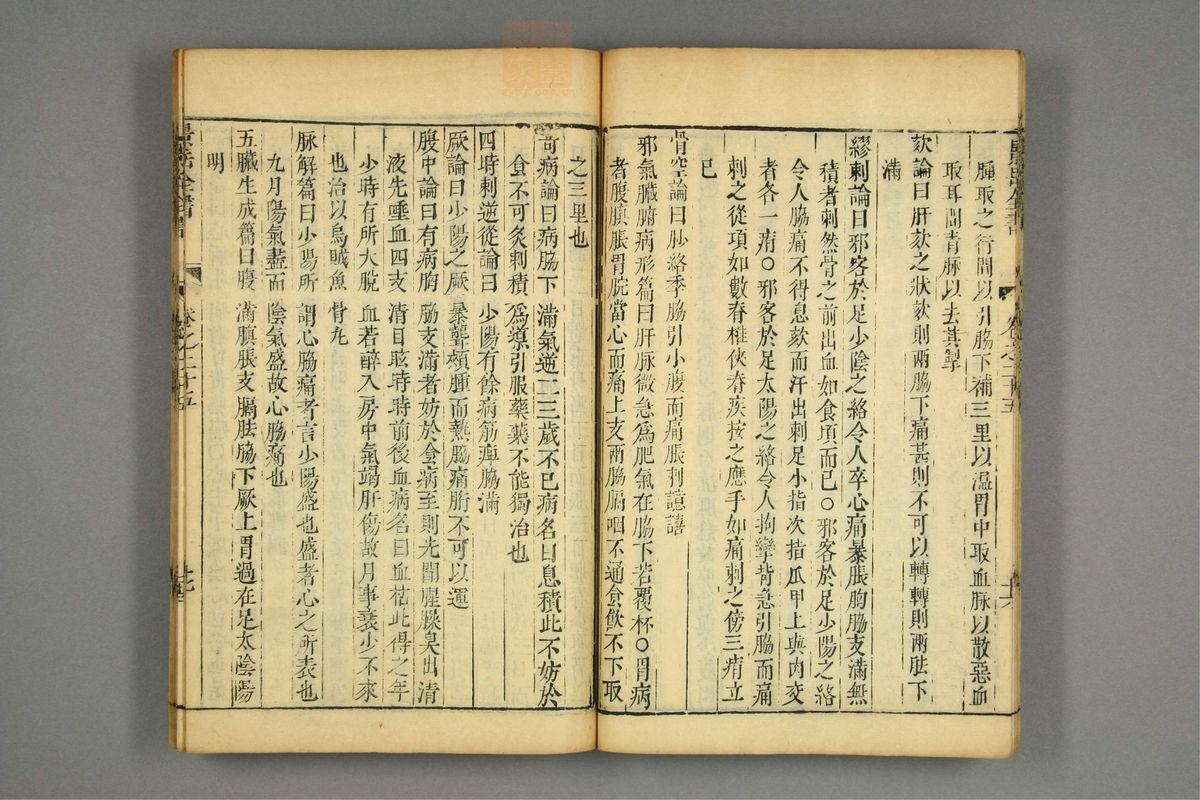 景岳全書
卷之二十五
十六
腫取之行間以引脇下補三里以溫胃中取血脉以散惡血
取耳間青脉以去其掣
欬論曰肝欬之狀欬則兩脇下痛甚則不可以轉轉則兩胠下
滿
繆刺論曰邪客於足少陰之絡令人卒心痛暴脹胸脇支滿無
積者刺然骨之前出血如食頃而已○邪客於足少陽之絡
令人脇痛不得息欬而汗出刺足小指次指爪甲上與肉交
者各一痏○邪客於足太陽之絡令人拘攣背急引脇而痛
刺之從項如數脊椎俠脊疾按之應手如痛刺之傍三痏立
已
骨空論曰䏚絡季脇引小腹而痛脹刺譩譆
邪氣臟腑病形篇曰肝脉微急爲肥氣在脇下若覆杯○胃病
者腹䐜脹胃脘當心而痛上支兩脇膈咽不通食飲不下取
之三里也
奇病論曰病脇下滿氣逆二三歲不已病名曰息積此不妨於
食不可灸刺積爲導引服藥藥不能獨治也
四時刺逆從論曰少陽有餘病筋痺脇滿
厥論曰少陽之厥暴聾頰腫而熱脇痛䯒不可以運
腹中論曰有病胸脇支滿者妨於食病至則先聞腥臊臭出清
液先唾血四支清目眩時時前後血病名曰血枯此得之年
少時有所大脫血若醉入房中氣竭肝傷故月事衰少不來
也治以烏賊魚骨丸
脉解篇曰少陽所謂心脇痛者言少陽盛也盛者心之所表也
九月陽氣盡而陰氣盛故心脇痛也
五臟生成篇曰腹滿䐜脹支膈胠脇下厥上冒過在足太陰陽
明
景岳全書
卷之二十五
十七